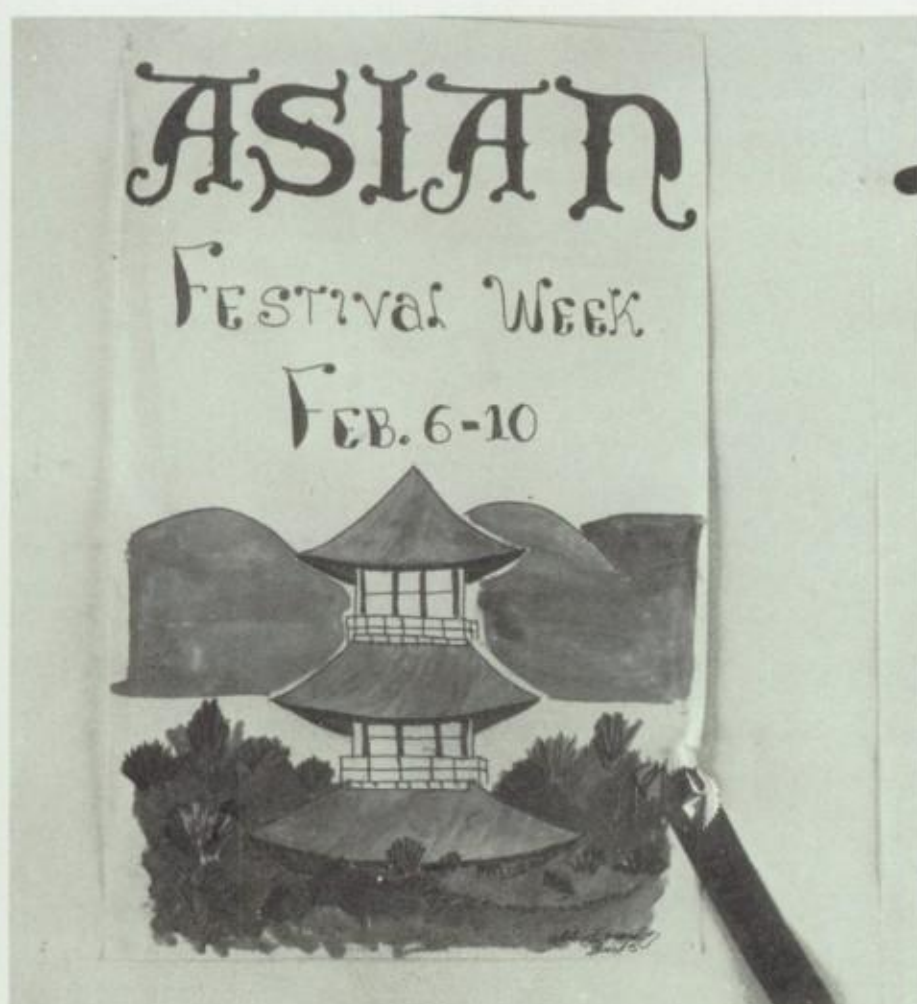 ASIAN
FESTIVal WEEK
FEB. 6-10